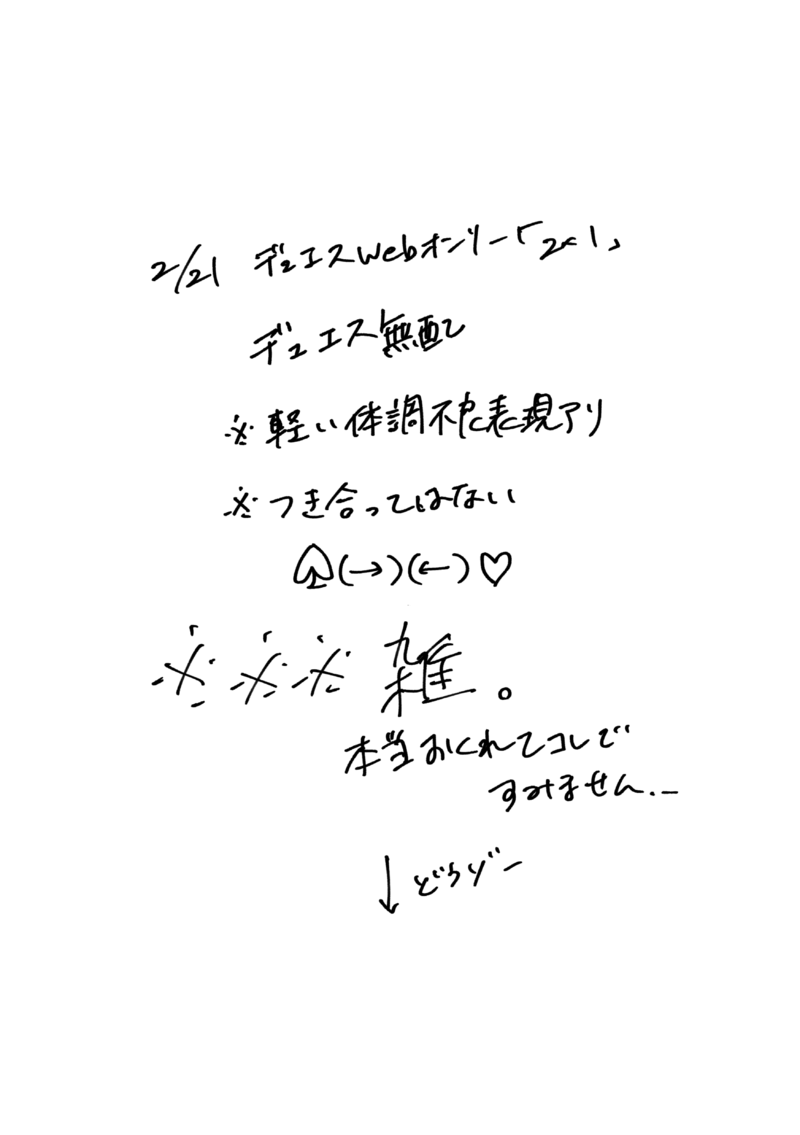 2/21 デュエスWebオンリー「2と1」
デュエス無配
※軽い体調不良表現アリ
※つき合ってはない
♤(→)(←)♡
※※※ 雑。
本当おくれてコレで
すみません..ー
↓どうゾー